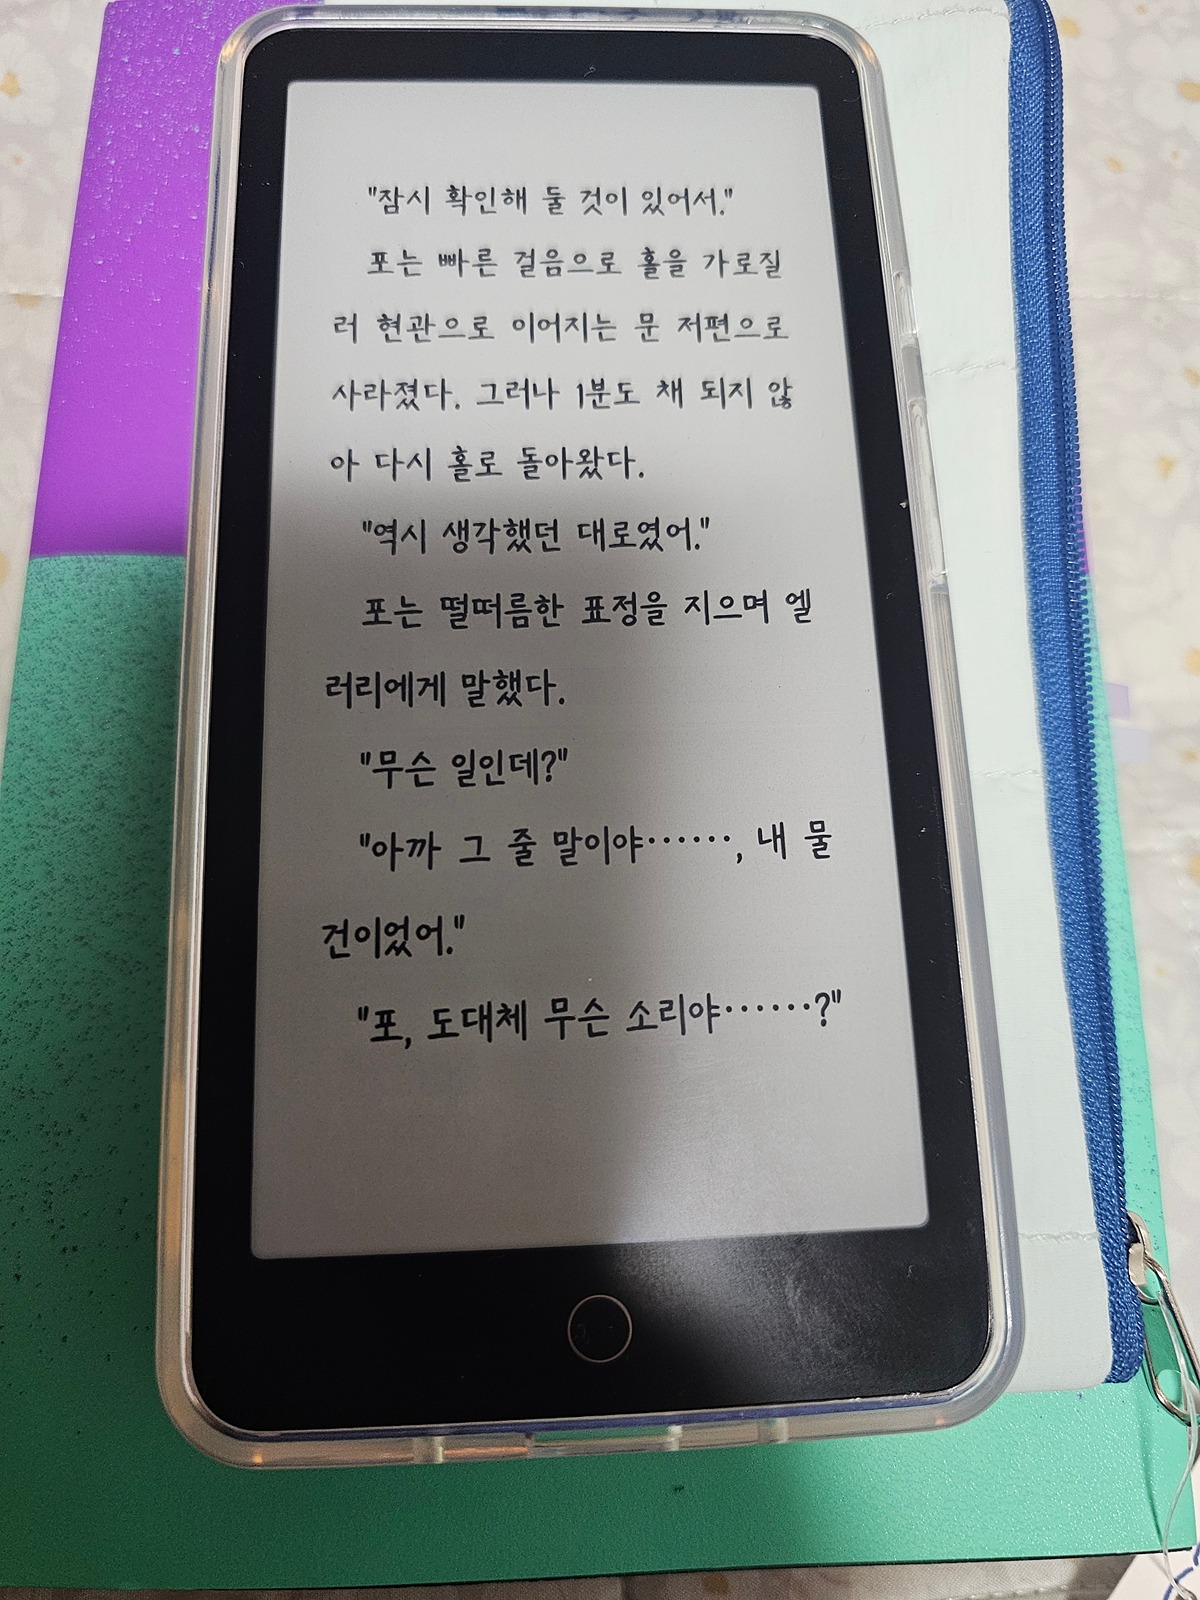 "잠시 확인해 둘 것이 있어서."
포는 빠른 걸음으로 홀을 가로질
러 현관으로 이어지는 문 저편으로
사라졌다. 그러나 1분도 채 되지 않
아 다시 홀로 돌아왔다.
"역시 생각했던 대로였어."
포는 떨떠름한 표정을 지으며 엘
러리에게 말했다.
"무슨 일인데?"
"아까 그 줄 말이야……, 내 물
건이었어."
"포, 도대체 무슨 소리야……?"